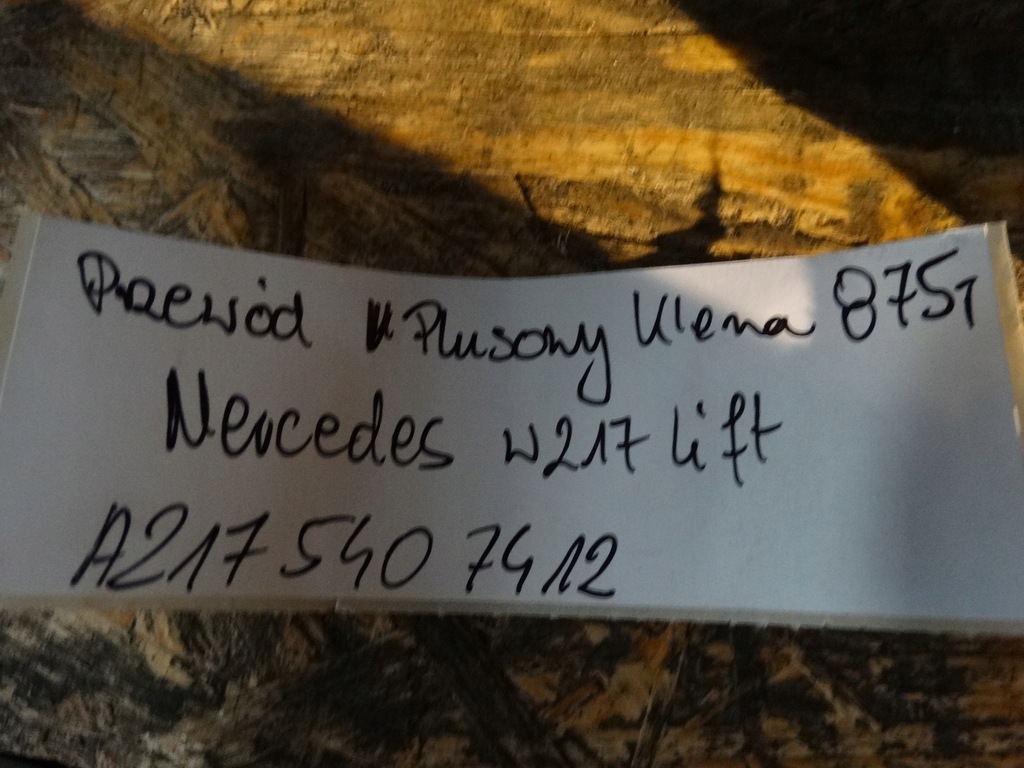 Przewód Plusowy Klema 875т
Mercedes W217 Lift
A217 540 7412